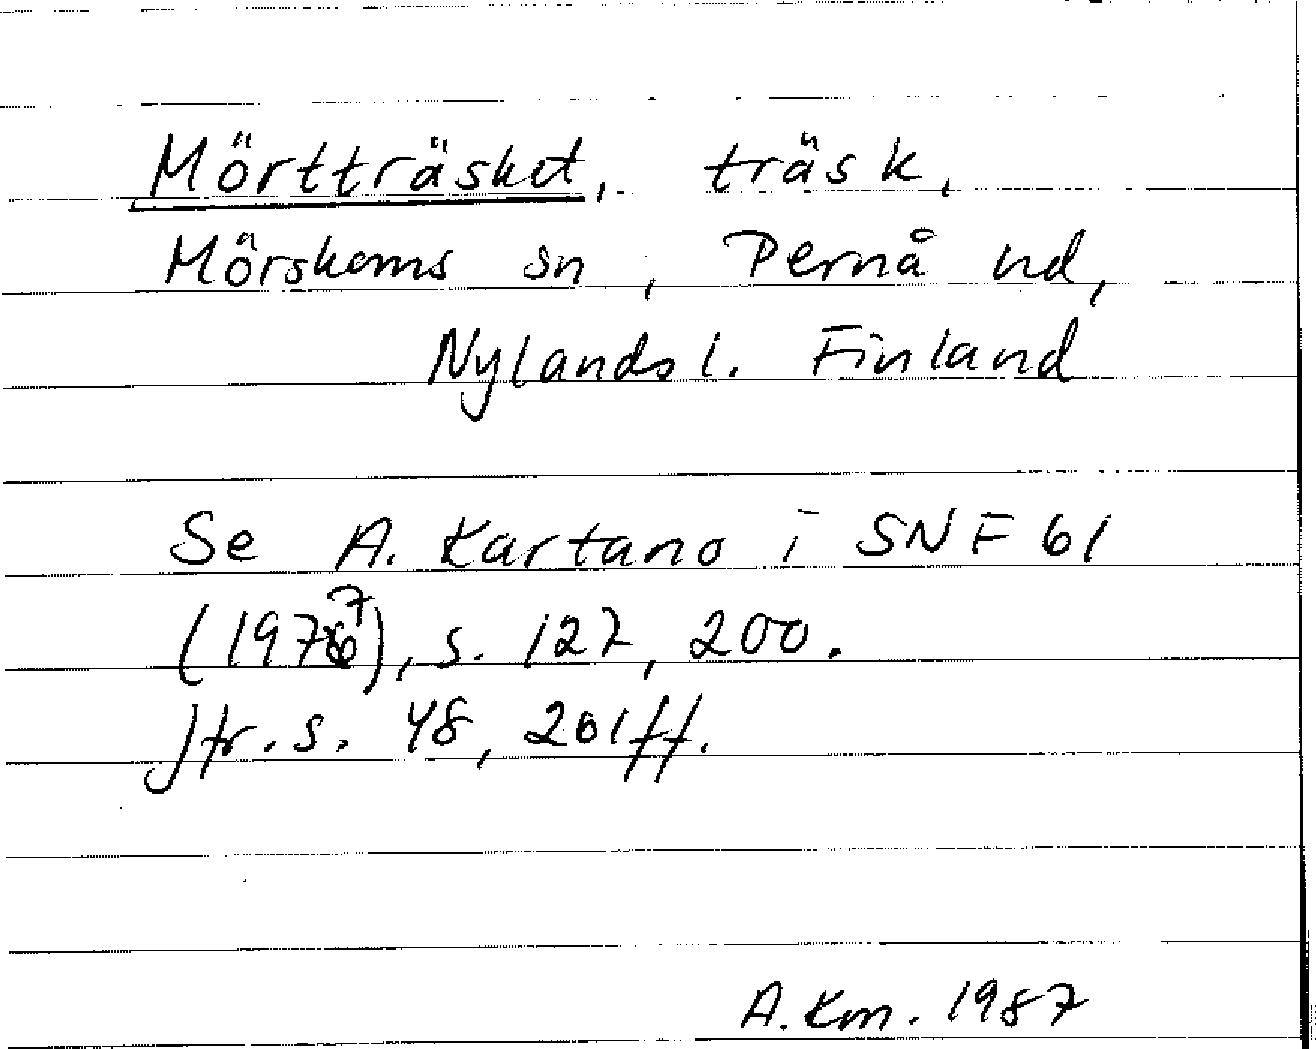 Mörtträsket, träsk,
Mörskoms sn, Pernå hd,
Nylands l. Finland
Se A. Kartano i SNF 61
(1977), s. 127, 200.
Jfr. s. 48, 201ff.
A. Km. 1987